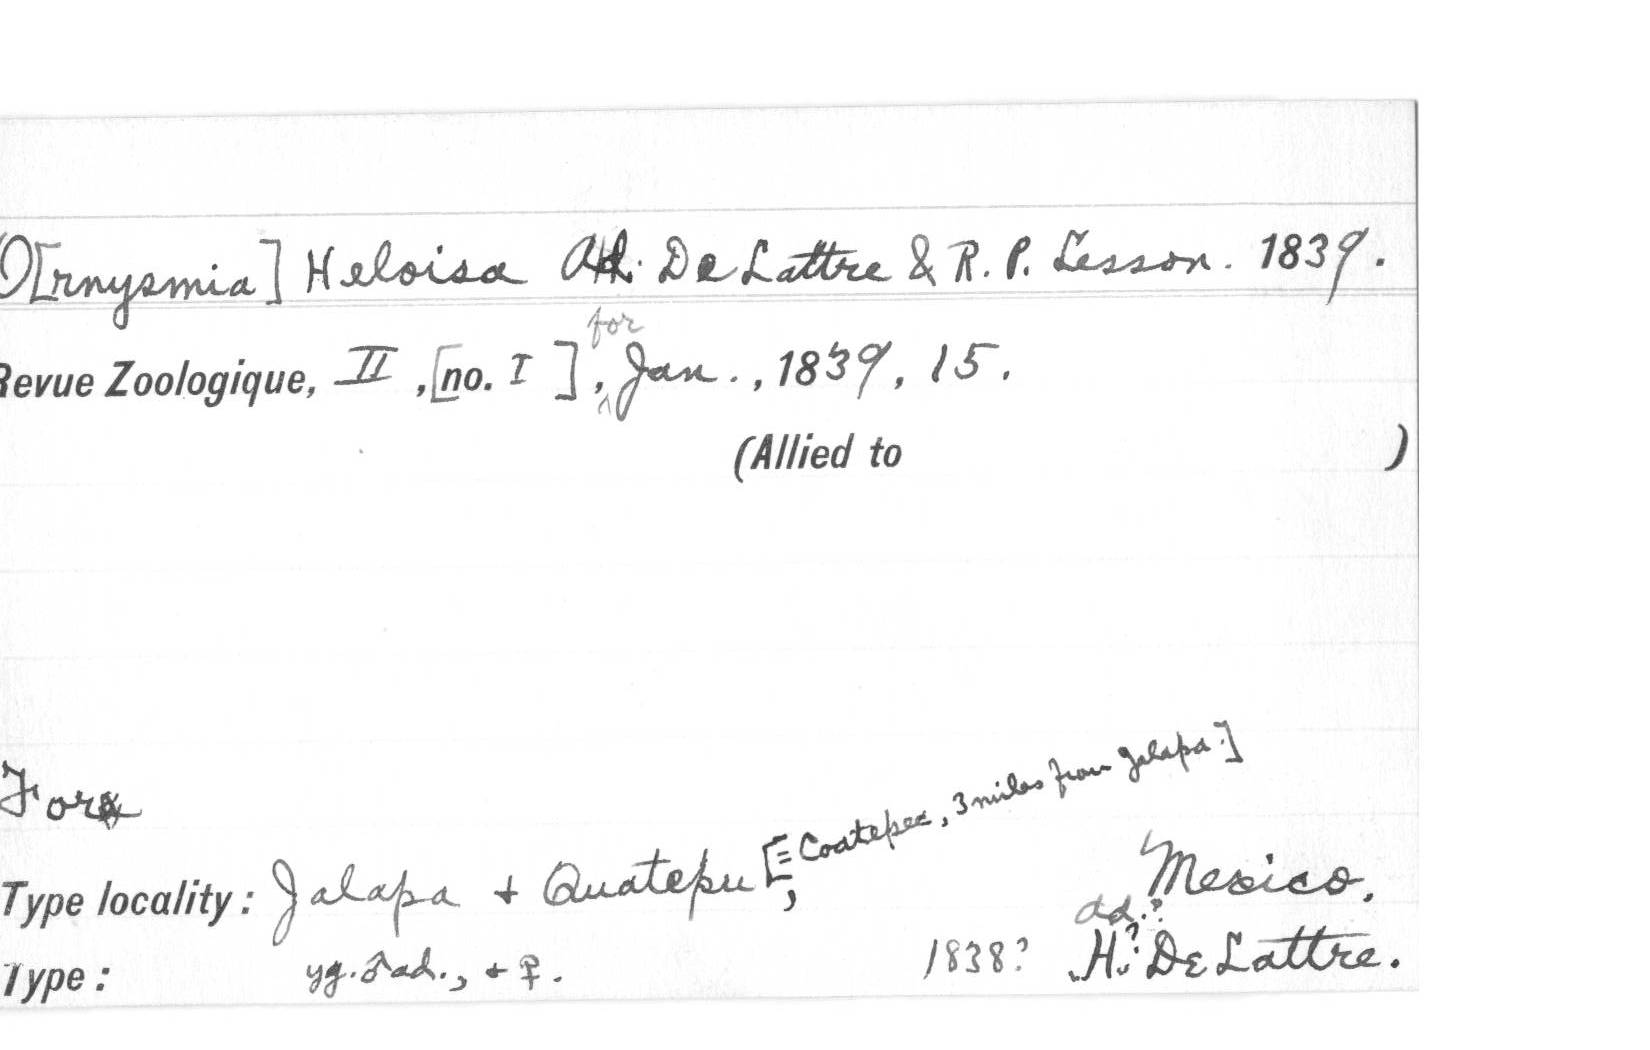 O[rnysmia] Heloisa Ad. De Lattre & R. P. Lesson. 1839.
Revue Zoologique, II, [no. I], for Jan., 1839, 15.
(Allied to )
For
Type locality: Jalapa + Quatepu [= Coatepec, 3 miles from Jalapa.], Mexico,
Ad.?
Type: yg. ♂ ad., + ♀. 1838? "H."? De Lattre.